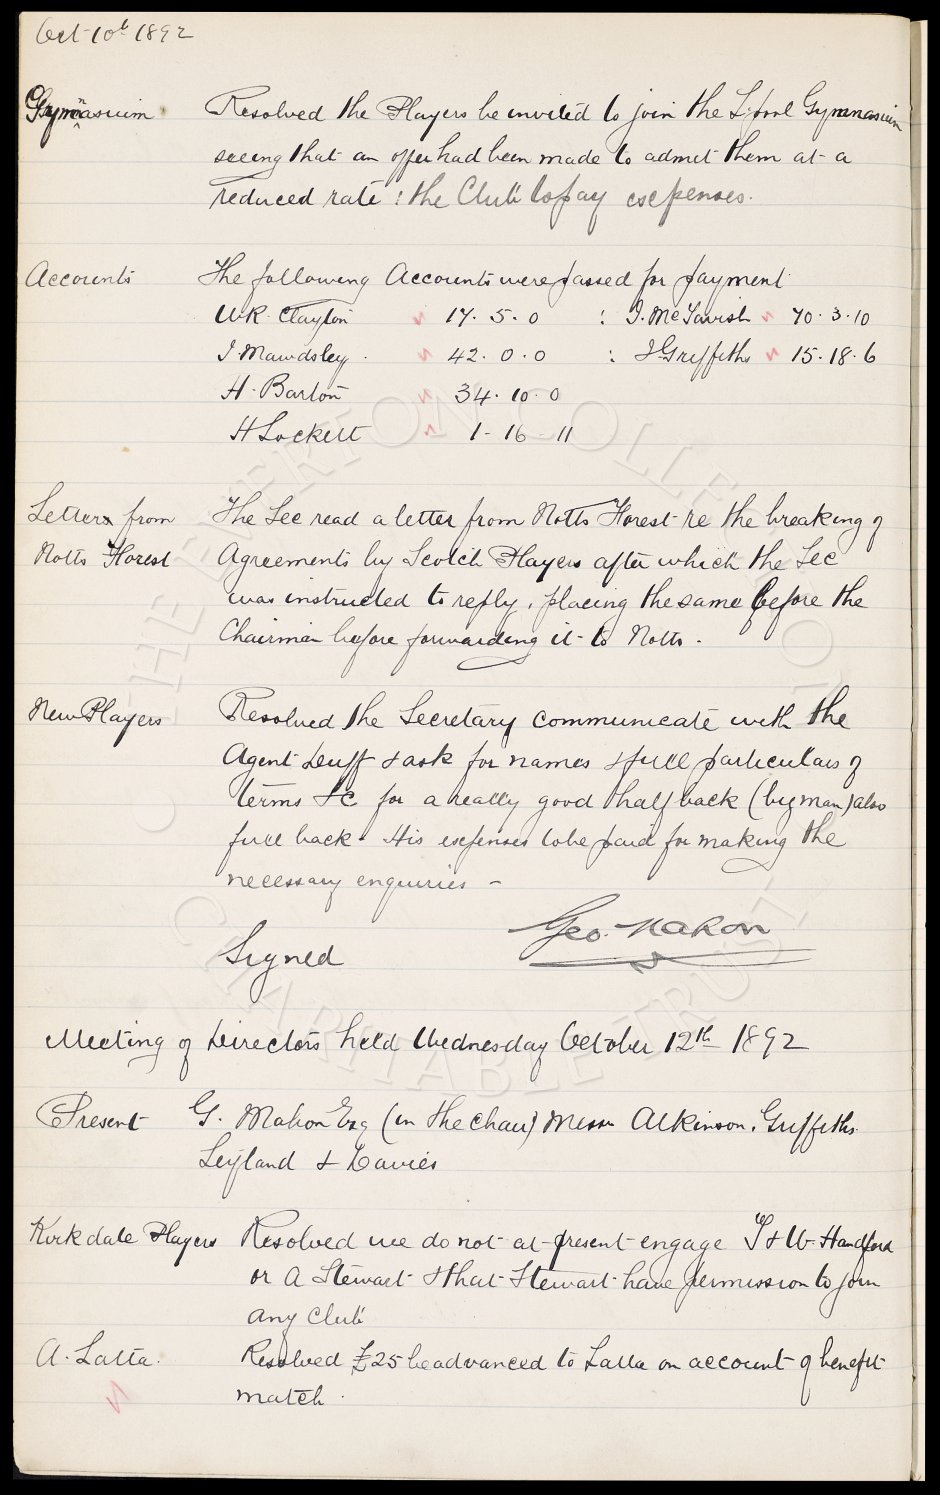 Oct 10th 1892
Gymnasium Resolved the Players be invited to join the L'pool Gymnasium
seeing that an offer had been made to admit them at a
reduced rate : the Club to pay expenses.
Accounts The following Accounts were passed for payment
W.R. Clayton 17. 5. 0 : J. McTavish 70. 3. 10
J Mawdsley 42. 0. 0 : J Griffiths 15. 18. 6
H. Barton 34. 10. 0
H Lockett 1 - 16 - 11
Letter from The Sec read a letter from Notts Forest re the breaking of
Notts Forest Agreements by Scotch Players after which the Sec
was instructed to reply, placing the same before the
Chairman before forwarding it to Notts.
New Players Resolved the Secretary communicate with the
Agent Duff & ask for names & full particulars of
terms &c for a really good half back (big man) also
full back. His expenses to be paid for making the
necessary enquiries -
Signed Geo. Mahon
Meeting of Directors held Wednesday October 12th 1892
Present G. Mahon Esq (in the chair) Messrs Atkinson, Griffiths
Leyland & Davies
Kirkdale Players Resolved we do not at present engage J & W. Handford
or A Stewart & that Stewart have permission to join
any club
A. Latta. Resolved £25 be advanced to Latta on account of benefit
match.
THE EVERTON COLLECTION
CHARITABLE TRUST